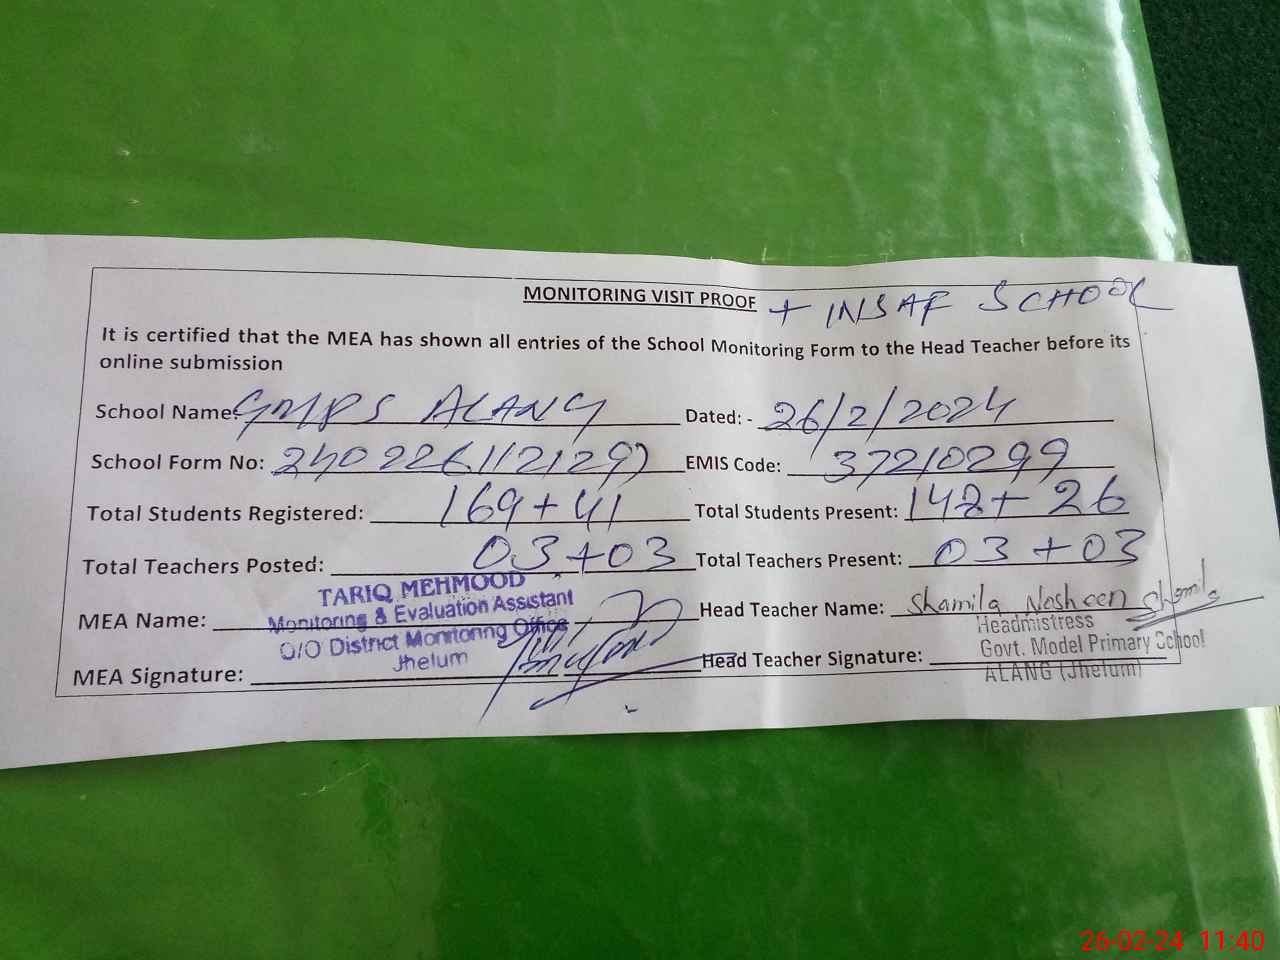 MONITORING VISIT PROOF + INSAF SCHOOL
It is certified that the MEA has shown all entries of the School Monitoring Form to the Head Teacher before its
online submission
School Name: GMPS ALANG Dated: - 26/2/2024
School Form No: EMIS Code: 37210299
Total Students Registered: 169+41 Total Students Present: 142+26
Total Teachers Posted: 03+03 Total Teachers Present: 03+03
MEA Name: TARIQ MEHMOOD
Monitoring & Evaluation Assistant
O/O District Monitoring Office
Jhelum
Head Teacher Name: Shamila Nosheen Shamila
Headmistress
Govt. Model Primary School
ALANG (Jhelum)
MEA Signature: Head Teacher Signature:
26-02-24 11:40